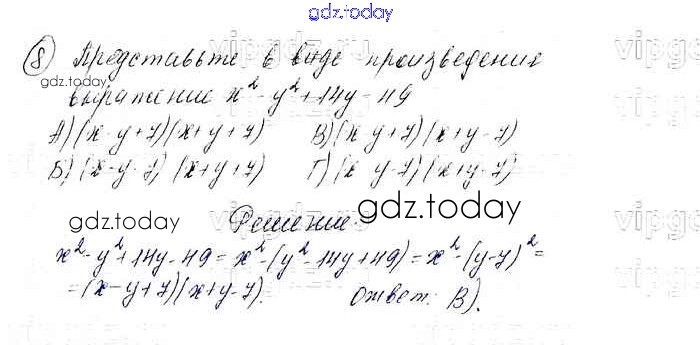 gdz.today
8) Представьте в виде произведения
gdz.today
выражение x² - y² + 14y - 49
А) (x - y + 7)(x + y + 7) В) (x - y + 7)(x + y - 7)
Б) (x - y - 7)(x + y + 7) Г) (x - y - 7)(x + y - 7)
gdz.today Решение. gdz.today
x² - y² + 14y - 49 = x² - (y² - 14y + 49) = x² - (y - 7)² =
= (x - y + 7)(x + y - 7). Ответ: В).